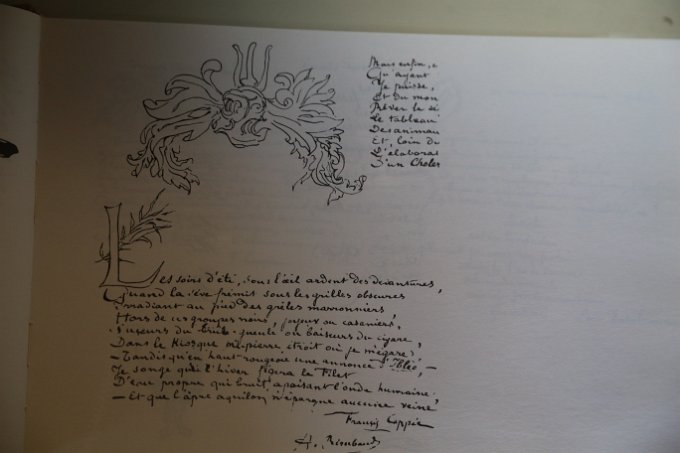 Mais enfin, c
Qu'ayant
Je puisse,
Et du mon
Rêver le sé
Le tableau
Des animau
Et, loin du
L'élaborat
D'un Choler
Les soirs d'été, sous l'œil ardent des devantures,
Quand la sève frémit sous les grilles obscures
Irradiant au pied des grêles marronniers,
Hors de ces groupes noirs, joyeux ou casaniers,
Suceurs du brûle-gueule ou baiseurs du cigare,
Dans le Kiosque mi-pierre étroit où je m'égare,
— Tandis qu'en haut rougeoie une annonce d'Ibled, —
Je songe que l'hiver figera le Filet
D'eau propre qui bruit, apaisant l'onde humaine,
— Et que l'âpre aquilon n'épargne aucune veine
Francis Coppée
A. Rimbaud